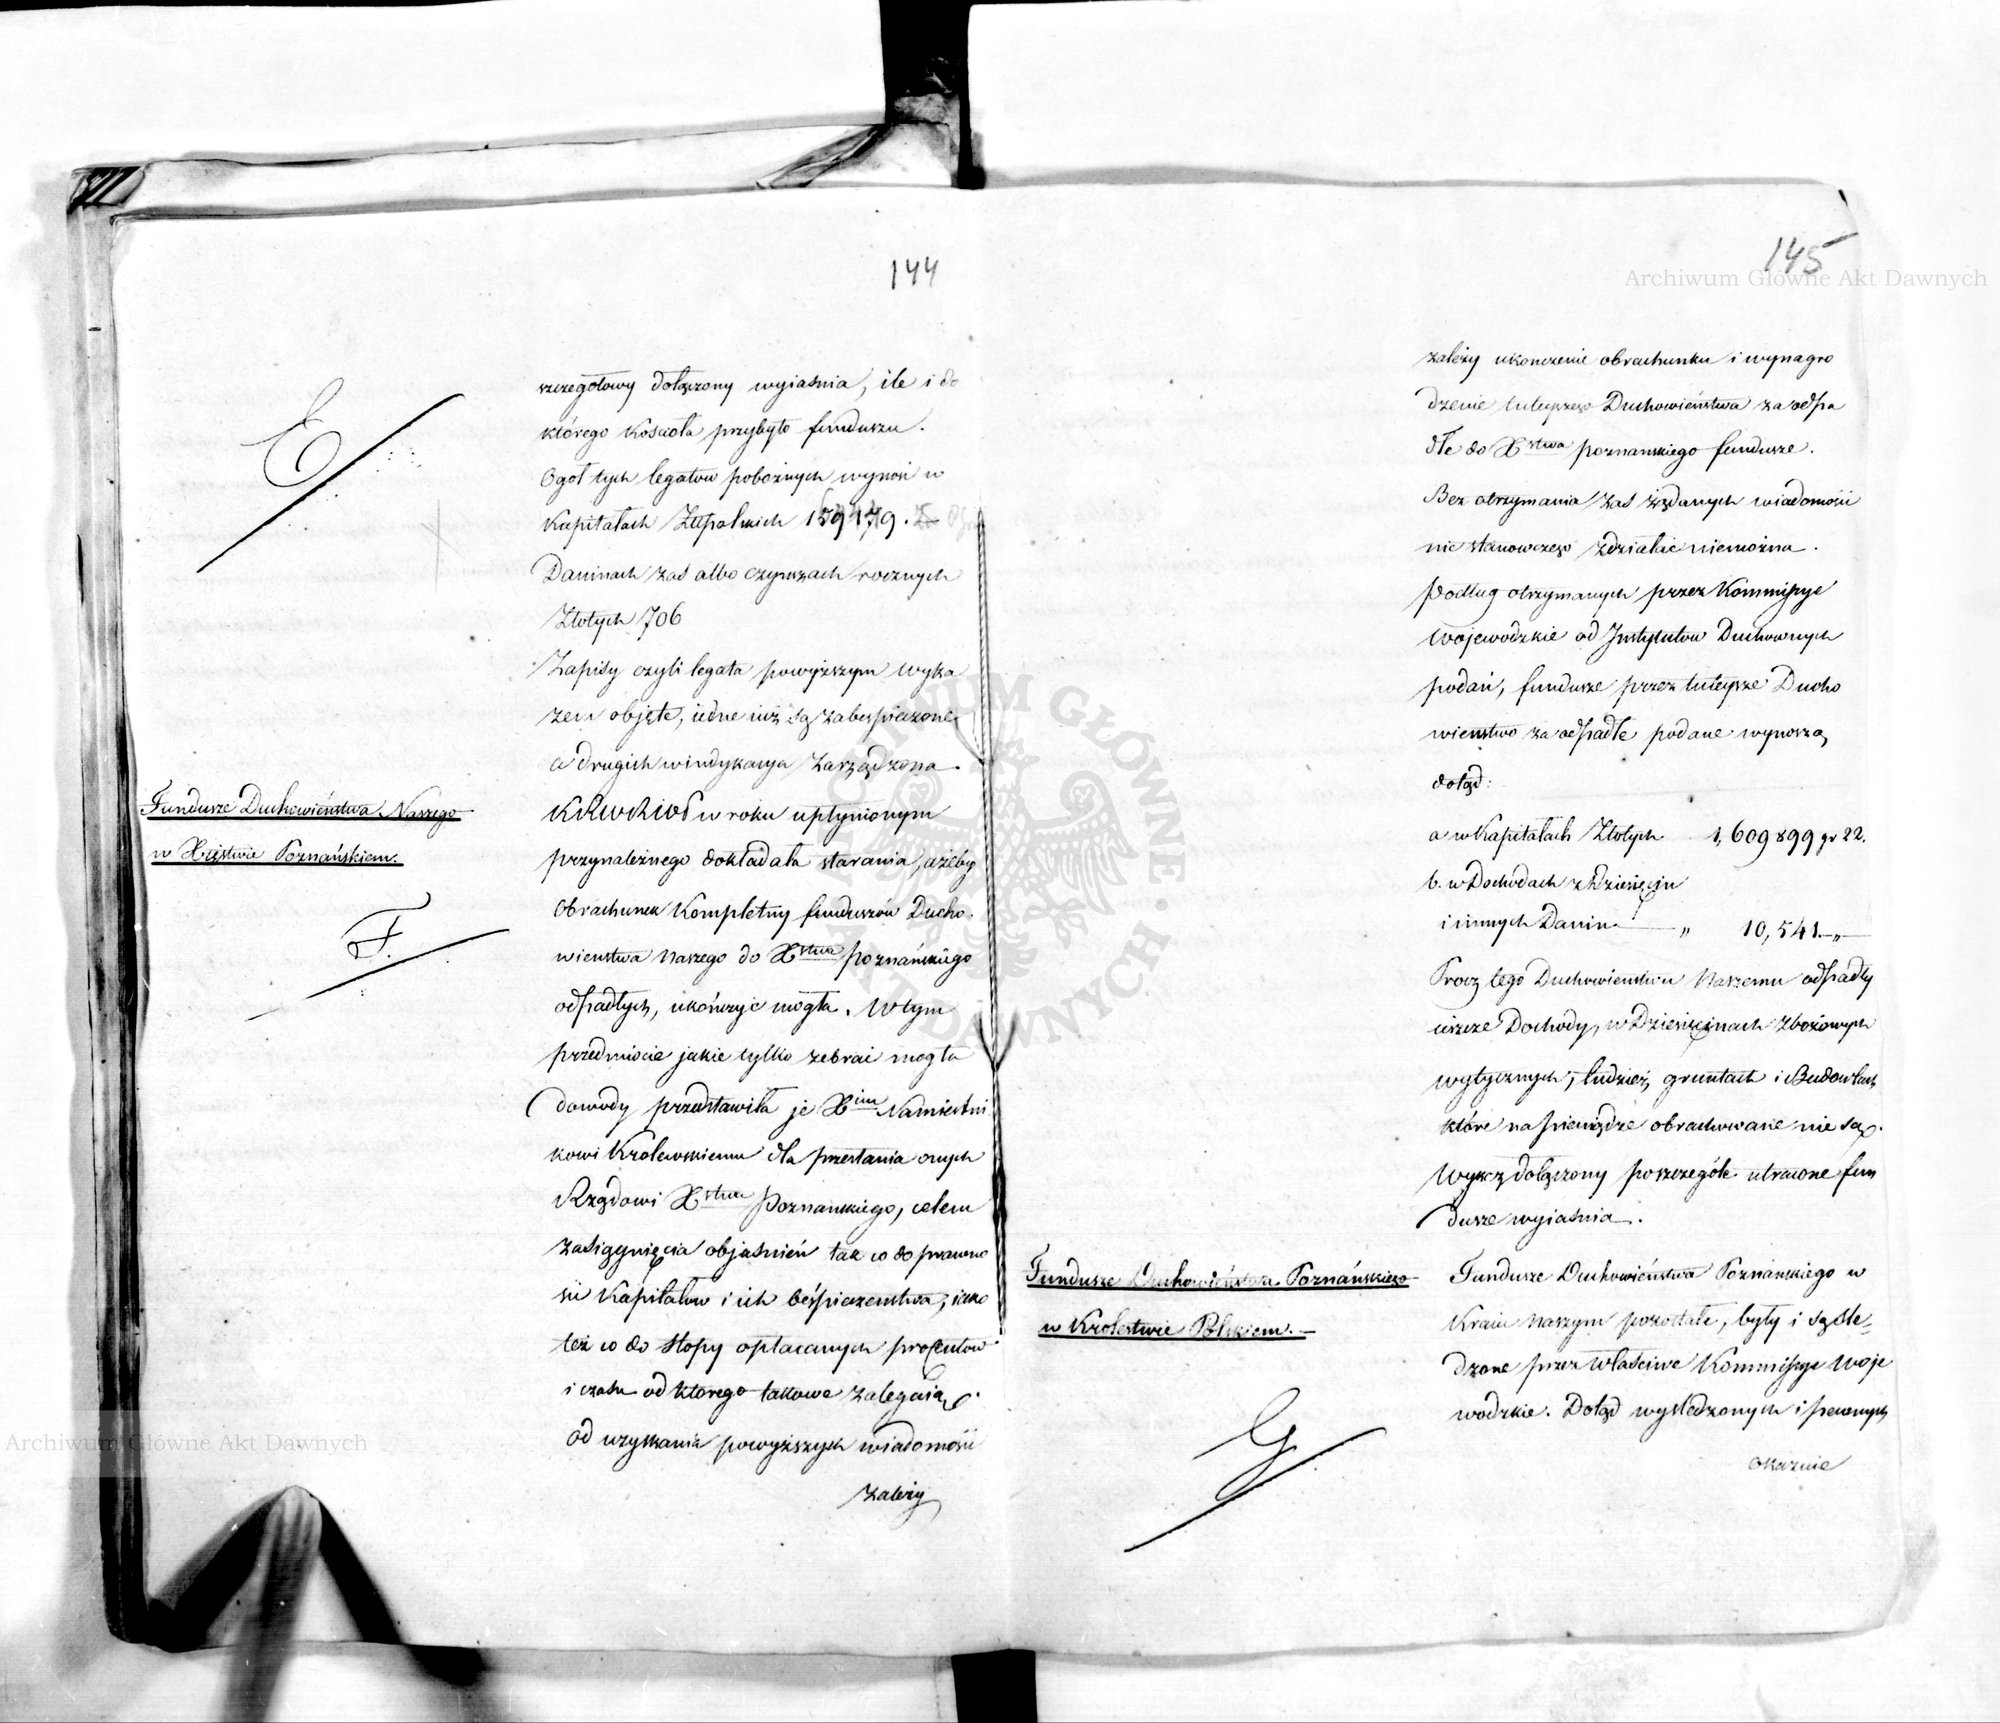 144
E
szczegołowy dołączony wyiaśnia, ile i do
którego Kościoła przybyło funduszu.
Ogół tych legatów pobożnych wynosi w
Kapitałach Złłpolskich
Daninach zaś albo czynszach rocznych
Złotych 706
Zapisy czyli legata powyższym wyka
zem objęte, iedne iuż są zabespieczone
a drugich windykacya zarządzona.
Fundusze Duchowieństwa Naszego
w Xięstwie Poznańskiem.
F.
KRWRiOP w roku upłynionym
przynależnego dokładała starania, ażeby
Obrachunek Kompletny funduszów Ducho-
wieństwa Naszego do Xstwa poznańskiego
odpadłych, ukończyć mogła. W tym
przedmiocie jakie tylko zebrać mogła
dowody przedstawiła je Xciu Namiestni
kowi Królewskiemu dla przesłania onych
Rządowi Xstwa Poznańskiego, celem
zasiągnięcia objaśnień tak co do prawno
ści Kapitałow i ich beśpieczenstwa, iako
też co do stopy opłacanych procentow
i czasu od ktorego takowe zalegaią.
Od uzyskania powyższych wiadomości
zależy
145
zależy ukonczenie obrachunku i wynagro
dzenie tuteyszego Duchowieństwa za odpa
dłe do Xstwa poznanskiego fundusze.
Bez otrzymania zaś żądanych wiadomości
nic stanowczego zdziałać niemożna.
Podług otrzymanych przez Kommissye
Wojewodzkie od Instytutow Duchownych
podań, fundusze przez tuteysze Ducho
wieństwo za odpadłe podane wynoszą
dotąd:
a w Kapitałach Złotych 1,609 899 gr 22.
b. w Dochodach z Dziesięcin
i innych Danin „ 10,541 „
Procz tego Duchowieństwu Naszemu odpadły
ieszcze Dochody, w Dziesięcinach zbożowych
wytycznych, tudzież gruntach i Budowlach
które na pieniądze obrachowane nie są.
Wykaz dołączony poszczególe utracone fun
dusze wyiaśnia.
Fundusze Duchowieństwa Poznańskiego
w Krolestwie Polskiem.
G
Fundusze Duchowieństwa Poznańskiego w
Kraiu Naszym pozostałe, były i są śle=
dzone przez właściwe Kommissye Woje
wodzkie. Dotąd wyśledzonych i pewnych
okaznie
Archiwum Główne Akt Dawnych
Archiwum Główne Akt Dawnych
ARCHIWUM GŁÓWNE AKT DAWNYCH